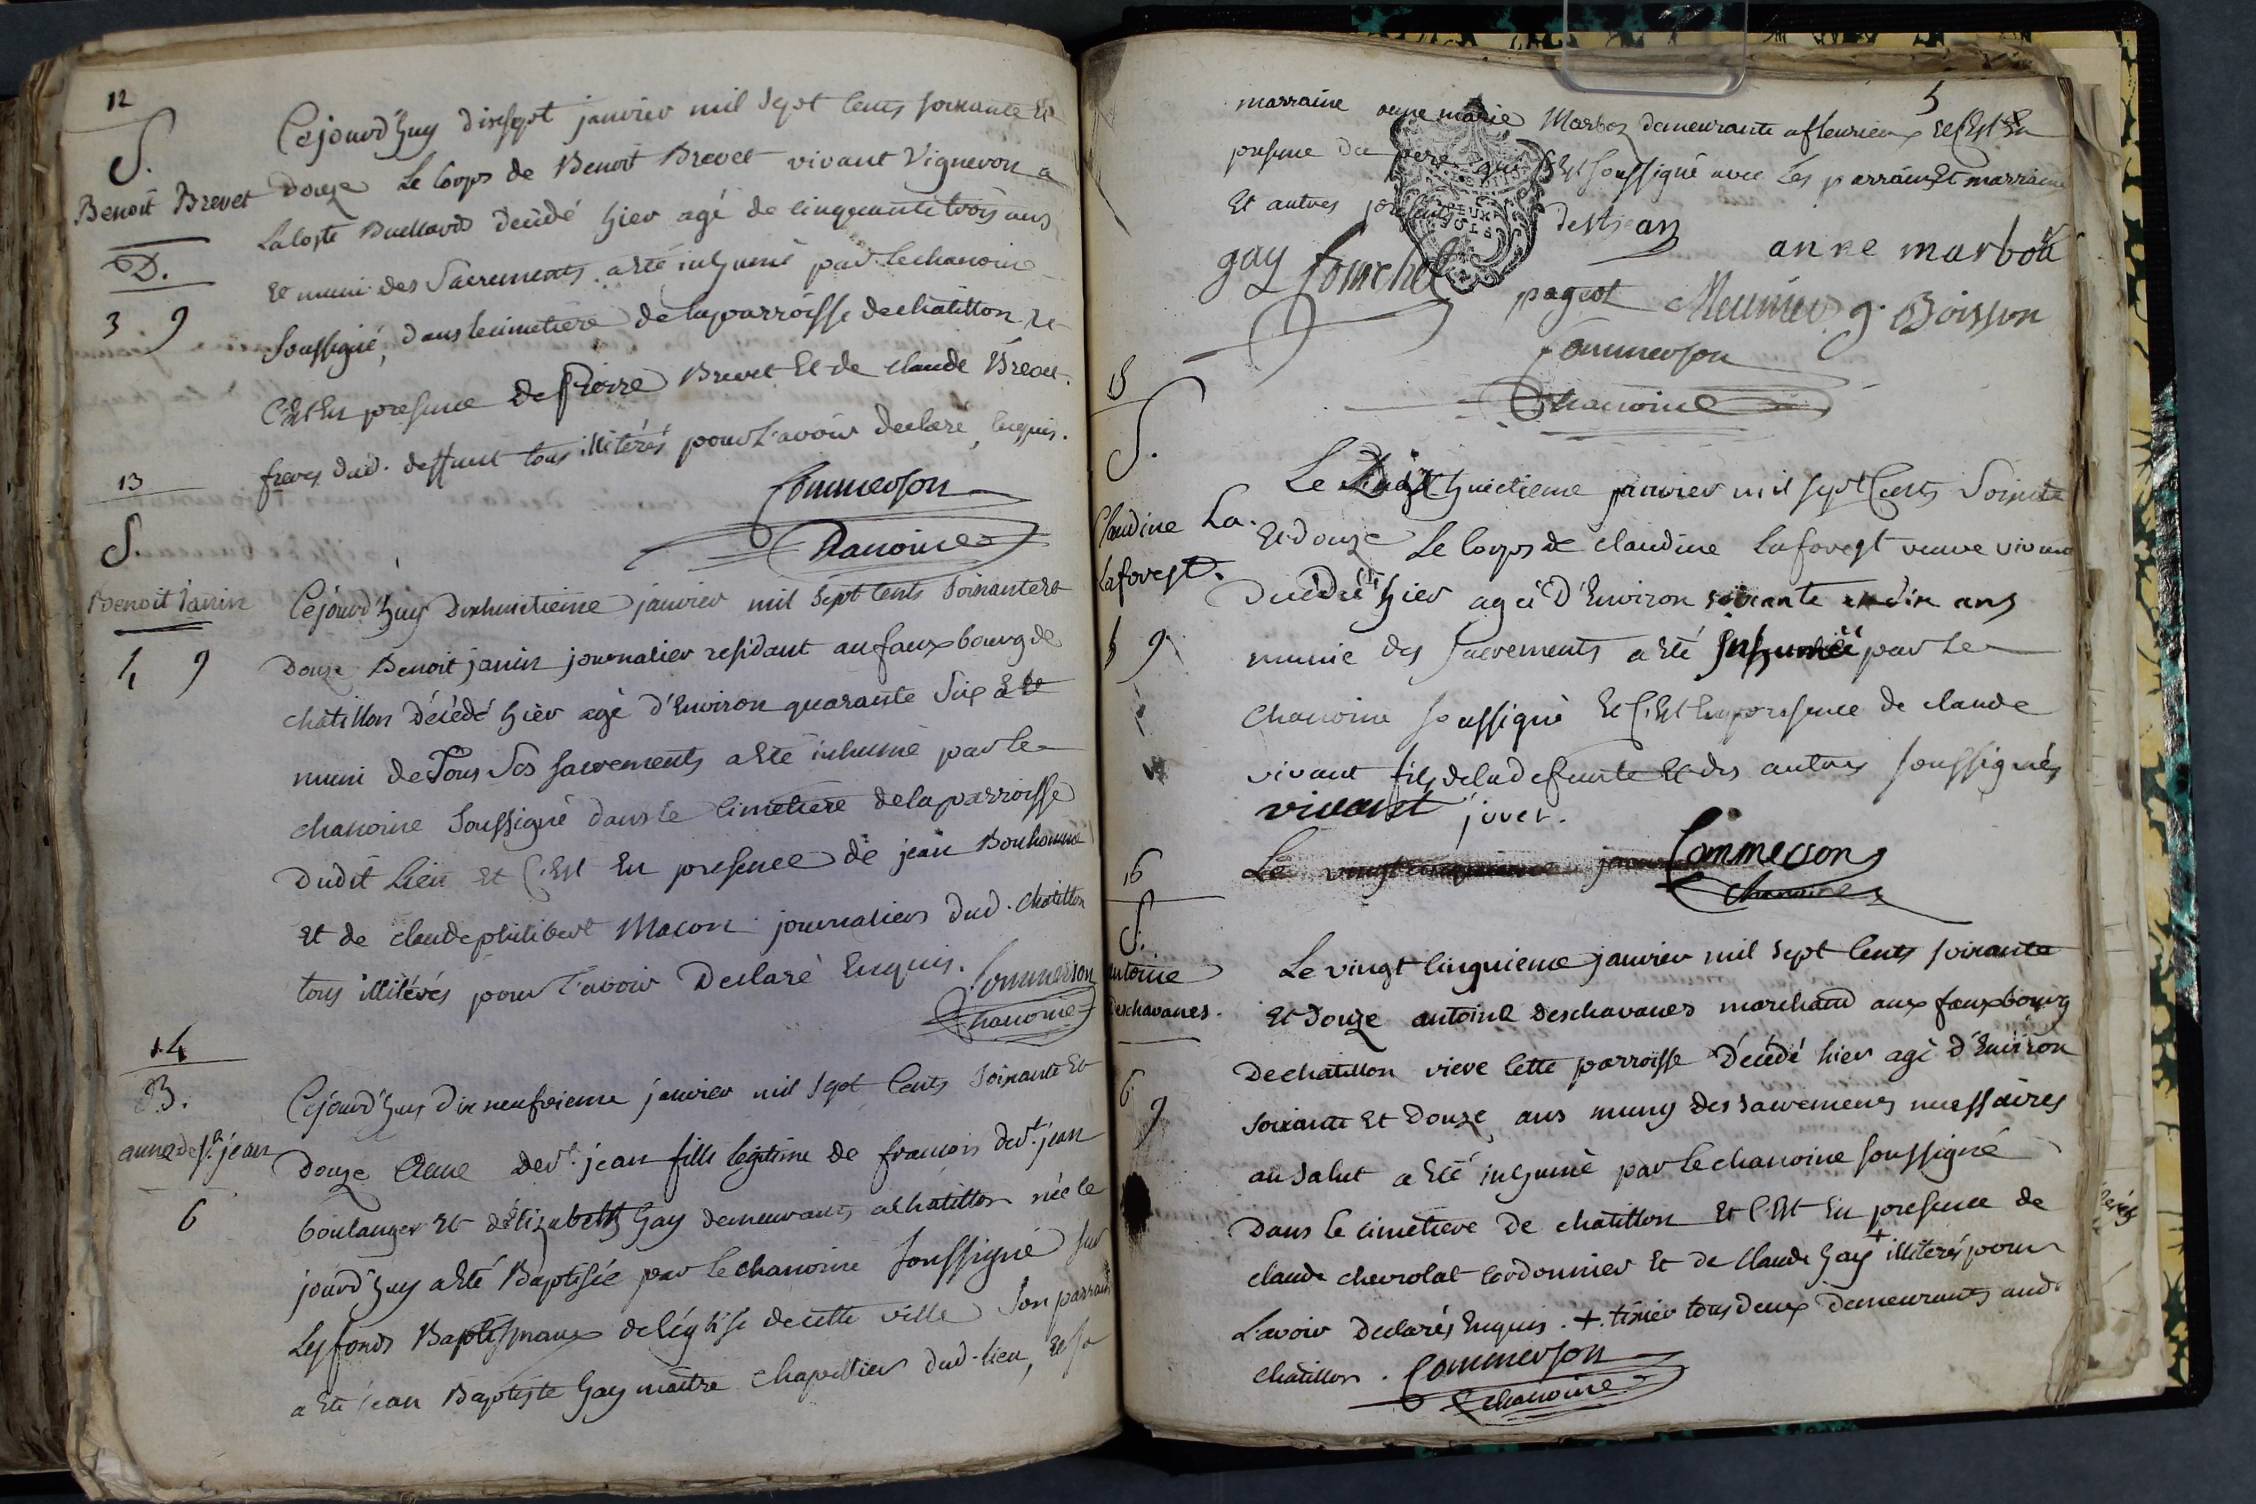 12
S.
Benoit Brevet
D.
3 9
Cejourd'huy dixsept janvier mil sept cents soixante et
Douze Le Corps de Benoit Brevet vivant Vigneron a
La coste décédé hier agé de cinquante trois ans
et muni des Sacrements a eté inhumé par le chanoine
soussigné, dans le cimetiere de la parroisse de chatillon et
C'est en presence de Pierre Brevet et de claude Brevet
freres dud. deffunt tous illitérés pour l'avoir declaré enquis.
Commerson
Chanoine
13
S.
Benoit Janin
4 9
Cejourd'huy Dixhuitieme janvier mil sept cents soixante et
Douze Benoit janin journalier residant au fauxbourg de
châtillon décédé hier agé d'Environ quarante six
muni de Tous Ses sacrements a eté inhumé par le
chanoine Soussigné dans le cimetiere de la parroisse
Dudit Lieu et C'est En presence de jean Bonhomme
et de claude philibert Macon journaliers dud. chatillon
tous illitérés pour l'avoir Declaré Enquis.
Commerson
Chanoine
14
B.
anne de st. jean
6
Cejourd'huy Dix neufvieme janvier mil sept cents Soixante Et
Douze Anne de st. jean fille légitime de francois de st. jean
boulanger et d'Elizabeth Gay demeurants a châtillon née le
jourd'huy a eté Baptisée par le chanoine soussigné sur
Les fonds Baptismaux de l'église de cette ville Son parrain
a eté jean Baptiste Gay maitre chapellier dud. lieu, et sa
5
marraine anne marie Marboz demeurante a fleurieux et C'est En
presence du pere qui s'est soussigné avec les parrain et marraine
Et autres presents destjean
gay fourchet anne marboü
pageot Meunier g. Boisson
Commerson
Chanoine
15
S.
Claudine La.
Laforest.
5 9
Le Dix huitieme janvier mil sept Cents Soixante
et douze Le Corps de claudine Laforest veuve vivant
Décédée hier agée D'Environ soixante et dix ans
munie des sacrements a eté inhumée par Le
Chanoine soussigné Et C'Est En presence de claude
vivant fils de la defunte Et des autres soussignés
vivant juvet.
Le vingt cinquieme janvier
Commerson
Chanoine
16
S.
antoine
Deschavanes.
6 9
Le vingt cinquieme janvier mil sept cents soixante
Et Douze antoine Deschavanes marchand aux fauxbourg
De chatillon riere cette parroisse Décédé hier agé d'Environ
soixante Et Douze ans muny des sacremens necessaires
au salut a eté inhumé par le chanoine soussigné
Dans le cimetiere De chatillon et c'est En presence de
claude chevrolat cordonnier et de Claude Gay + illiterés pour
L'avoir Declarés Enquis. +. tixier tous deux Demeurants aud.
chatillon. Commerson
Chanoine